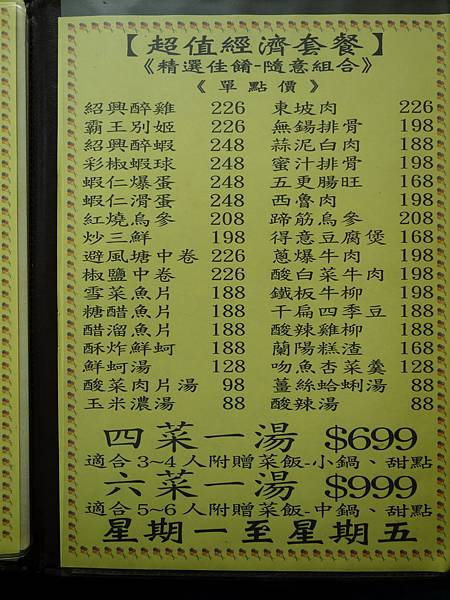 【超值經濟套餐】
《精選佳餚-隨意組合》
《單點價》
紹興醉雞 226 東坡肉 226
霸王別姬 226 無錫排骨 198
紹興醉蝦 248 蒜泥白肉 188
彩椒蝦球 248 蜜汁排骨 198
蝦仁爆蛋 248 五更腸旺 168
蝦仁滑蛋 248 西魯肉 198
紅燒烏參 208 蹄筋烏參 208
炒三鮮 198 得意豆腐煲 168
避風塘中卷 226 蔥爆牛肉 198
椒鹽中卷 226 酸白菜牛肉 198
雪菜魚片 188 鐵板牛柳 198
糖醋魚片 188 干扁四季豆 188
醋溜魚片 188 酸辣雞柳 188
酥炸鮮蚵 188 蘭陽糕渣 168
鮮蚵湯 128 吻魚杏菜羹 128
酸菜肉片湯 98 薑絲蛤蜊湯 88
玉米濃湯 88 酸辣湯 88
四菜一湯 $699
適合3~4人附贈菜飯-小鍋、甜點
六菜一湯 $999
適合5~6人附贈菜飯-中鍋、甜點
星期一至星期五